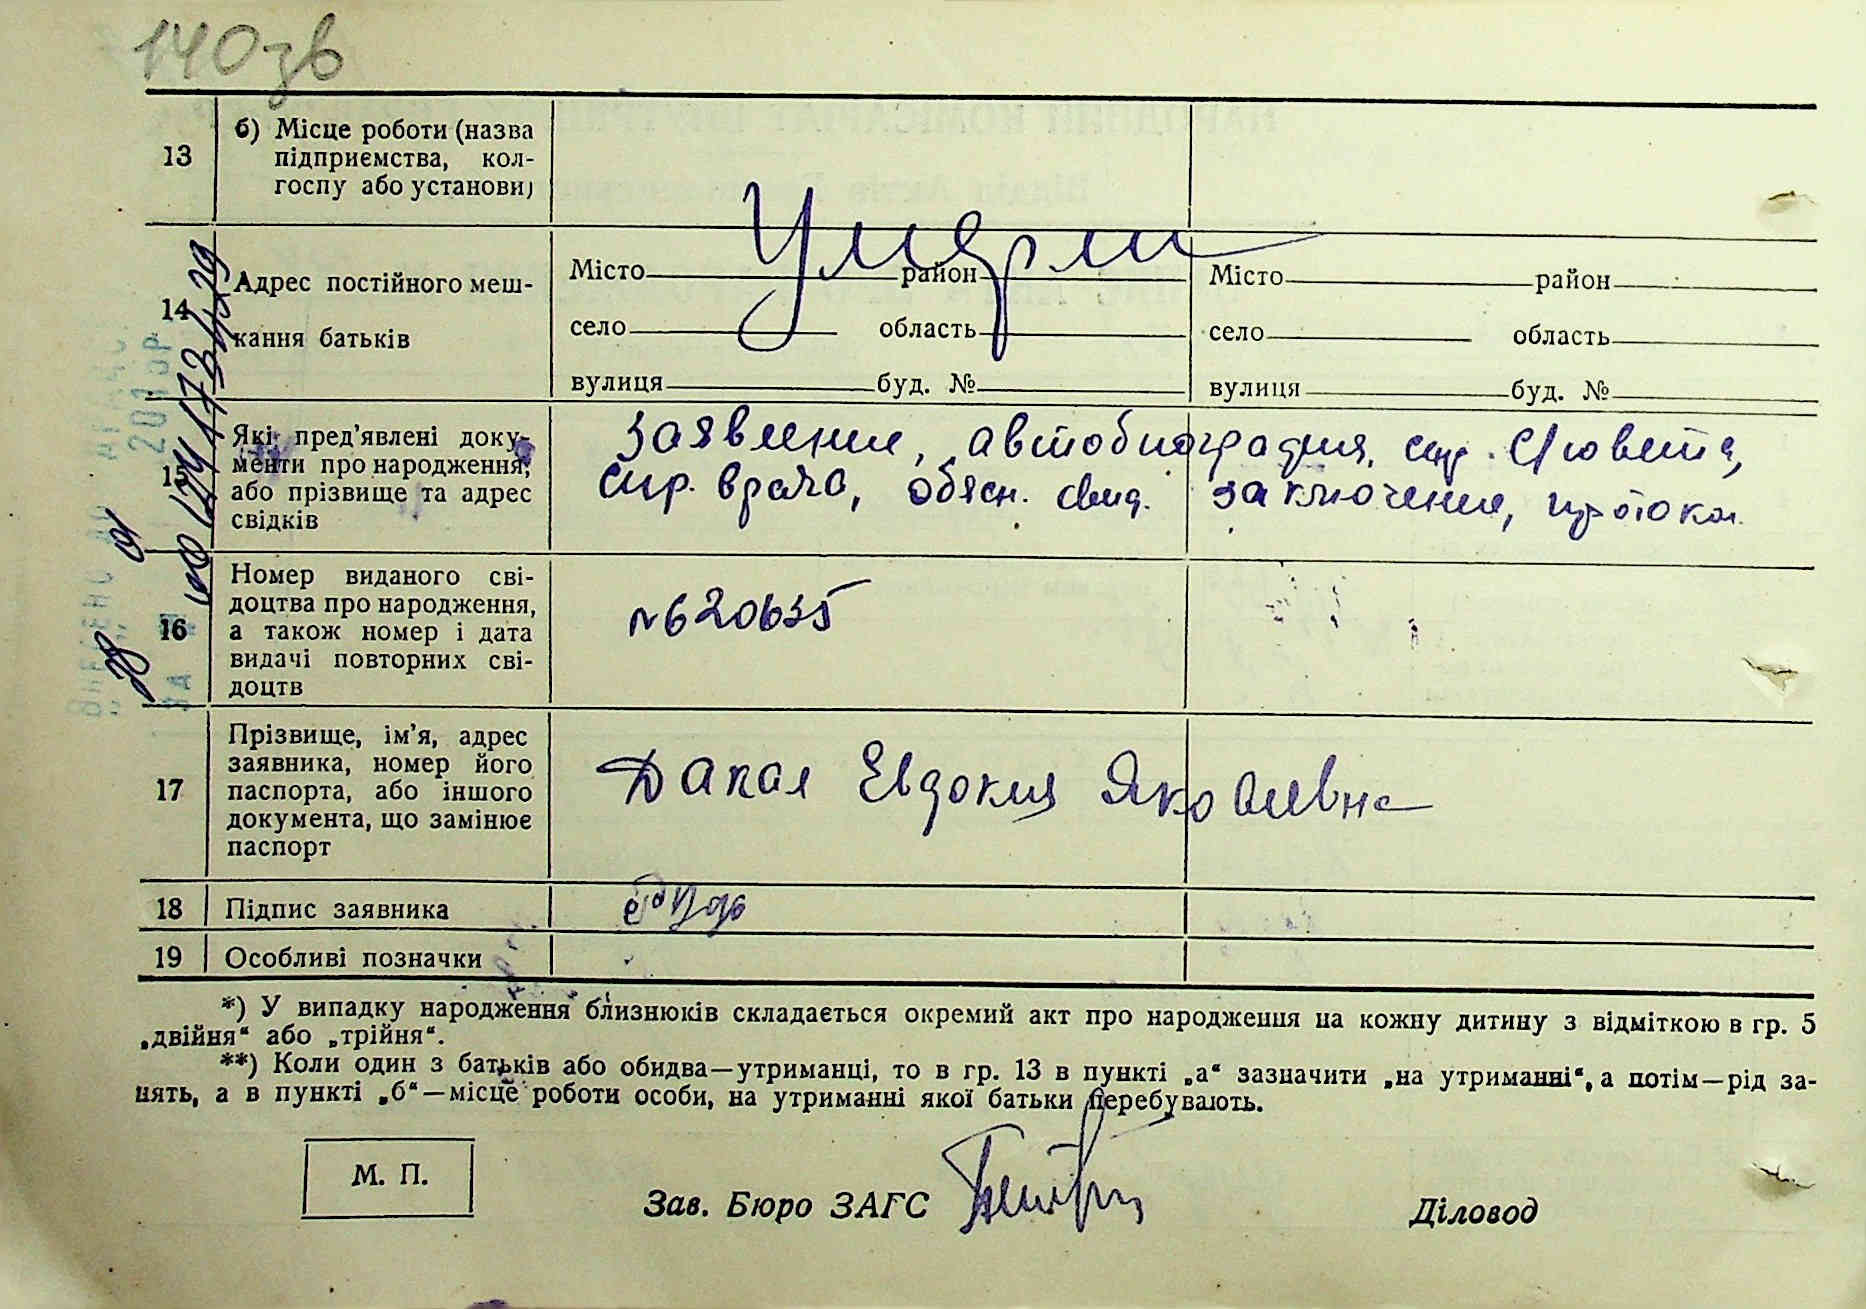 140зв
13 б) Місце роботи (назва
підприємства, кол-
госпу або установи)
Умерли
14 Адрес постійного меш-
кання батьків
Місто район Місто район
село область село область
вулиця буд. № вулиця буд. №
15 Які пред'явлені доку-
менти про народження,
або прізвище та адрес
свідків
заявление, автобиография, спр. с/совета,
спр. врача, обясн. свид. заключение, протокол
16 Номер виданого сві-
доцтва про народження,
а також номер і дата
видачі повторних сві-
доцтв
№620635
17 Прізвище, ім'я, адрес
заявника, номер його
паспорта, або іншого
документа, що замінює
паспорт
Дакал Евдокия Яковлевна
18 Підпис заявника
19 Особливі позначки
*) У випадку народження близнюків складається окремий акт про народження на кожну дитину з відміткою в гр. 5
„двійня“ або „трійня“.
**) Коли один з батьків або обидва—утриманці, то в гр. 13 в пункті „а“ зазначити „на утриманні“, а потім—рід за-
нять, а в пункті „б“—місце роботи особи, на утриманні якої батьки перебувають.
М. П.
Зав. Бюро ЗАГС Діловод